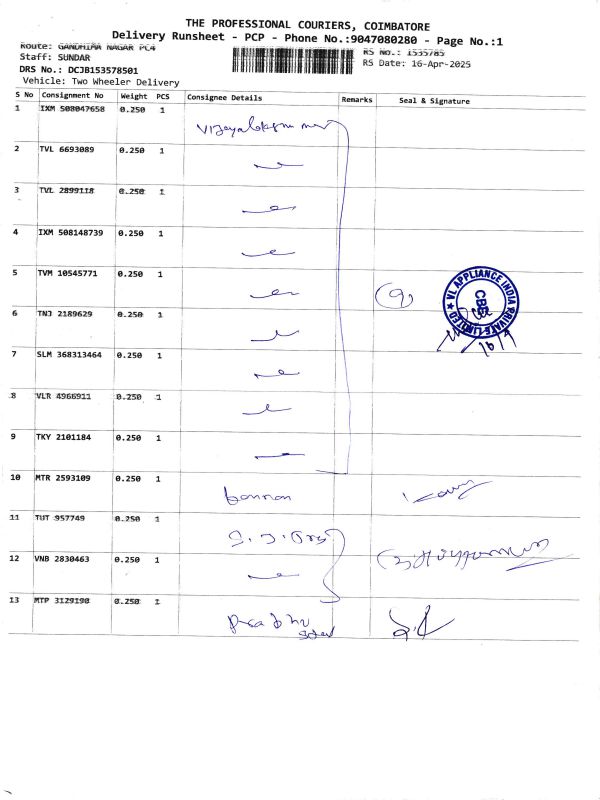 THE PROFESSIONAL COURIERS, COIMBATORE
Delivery Runsheet - PCP - Phone No.:9047080280 - Page No.:1
Route: GANDHIMA NAGAR PC4
RS No.: 1535785
Staff: SUNDAR
RS Date: 16-Apr-2025
DRS No.: DCJB153578501
Vehicle: Two Wheeler Delivery
S No Consignment No Weight PCS Consignee Details Remarks Seal & Signature
1 IXM 508047658 0.250 1
2 TVL 6693089 0.250 1
3 TVL 2899118 0.250 1
4 IXM 508148739 0.250 1
5 TVM 10545771 0.250 1 (9)
VL APPLIANCE INDIA PRIVATE LIMITED ★ CBE
6 TNJ 2189629 0.250 1
7 SLM 368313464 0.250 1
8 VLR 4966911 0.250 1
9 TKY 2101184 0.250 1
10 MTR 2593109 0.250 1
11 TUT 957749 0.250 1
12 VNB 2830463 0.250 1
13 MTP 3129190 0.250 1 Prabhu